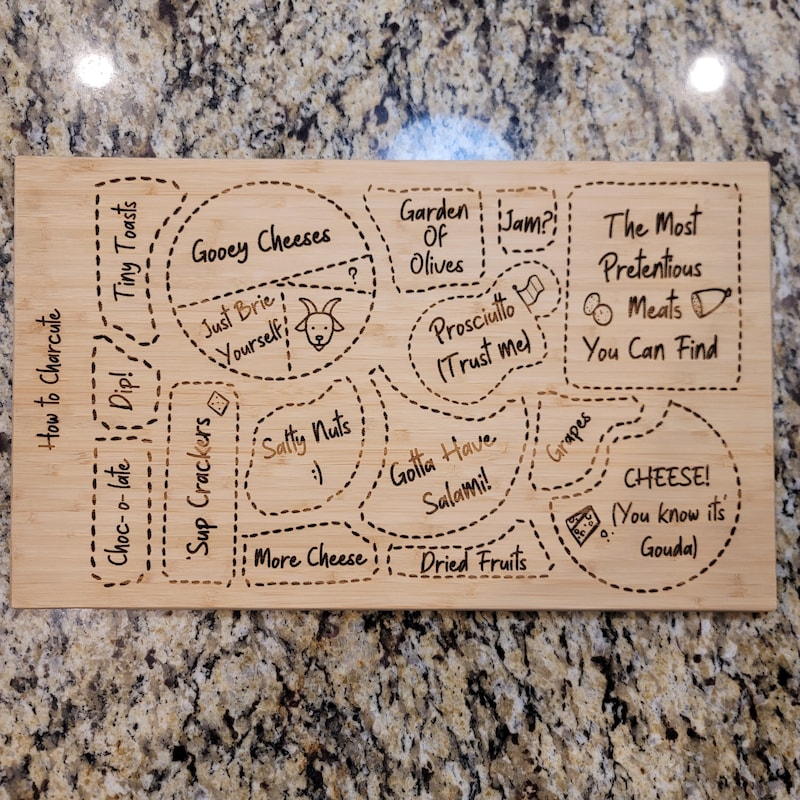 How to Charcute
Tiny Toasts
Dip!
Choc-o-late
Gooey Cheeses
?
Just Brie
Yourself
'Sup Crackers
Salty Nuts
:)
More Cheese
Garden
Of
Olives
Jam?
Prosciutto
(Trust me)
Gotta Have
Salami!
Dried Fruits
Grapes
The Most
Pretentious
Meats
You Can Find
CHEESE!
(You know its'
Gouda)